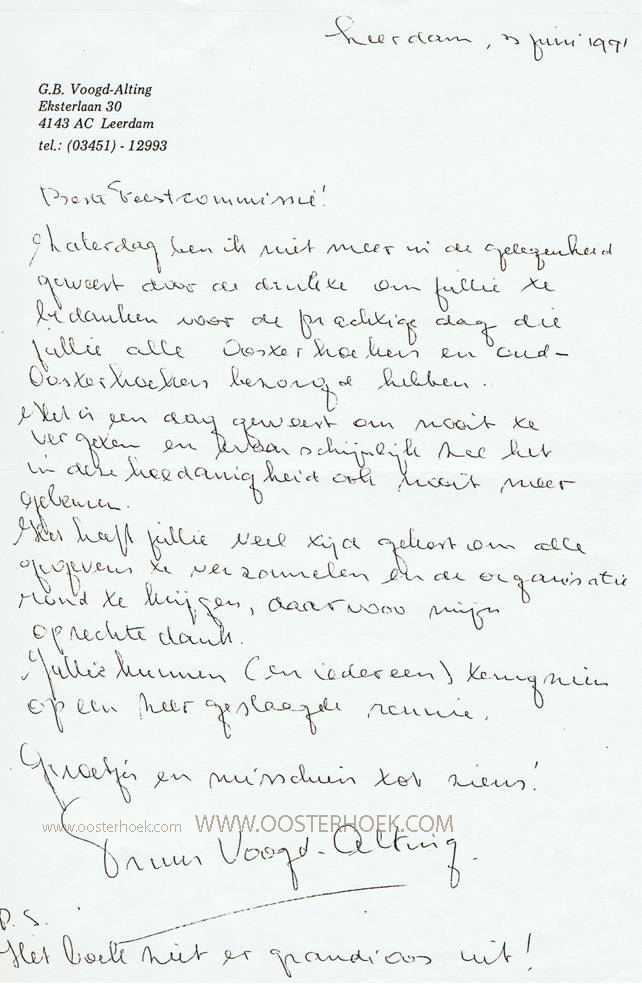 Leerdam, 3 juni 1991
G.B. Voogd-Alting
Eksterlaan 30
4143 AC Leerdam
tel.: (03451) - 12993
Beste Feestcommissie!
Zaterdag ben ik niet meer in de gelegenheid
geweest door de drukte om jullie te
bedanken voor de prachtige dag die
jullie alle Oosterhoekers en oud-
Oosterhoekers bezorgd hebben.
Het is een dag geweest om nooit te
vergeten en waarschijnlijk zal het
in deze hoedanigheid ook nooit meer
gebeuren.
Het heeft jullie veel tijd gekost om alle
gegevens te verzamelen en de organisatie
rond te krijgen, daarvoor mijn
oprechte dank.
Jullie kunnen (en iedereen) terugzien
op een zeer geslaagde reünie.
Groetjes en misschien tot ziens!
www.oosterhoek.com WWW.OOSTERHOEK.COM
Voogd-Alting.
P.S.
Het boek ziet er grandioos uit!